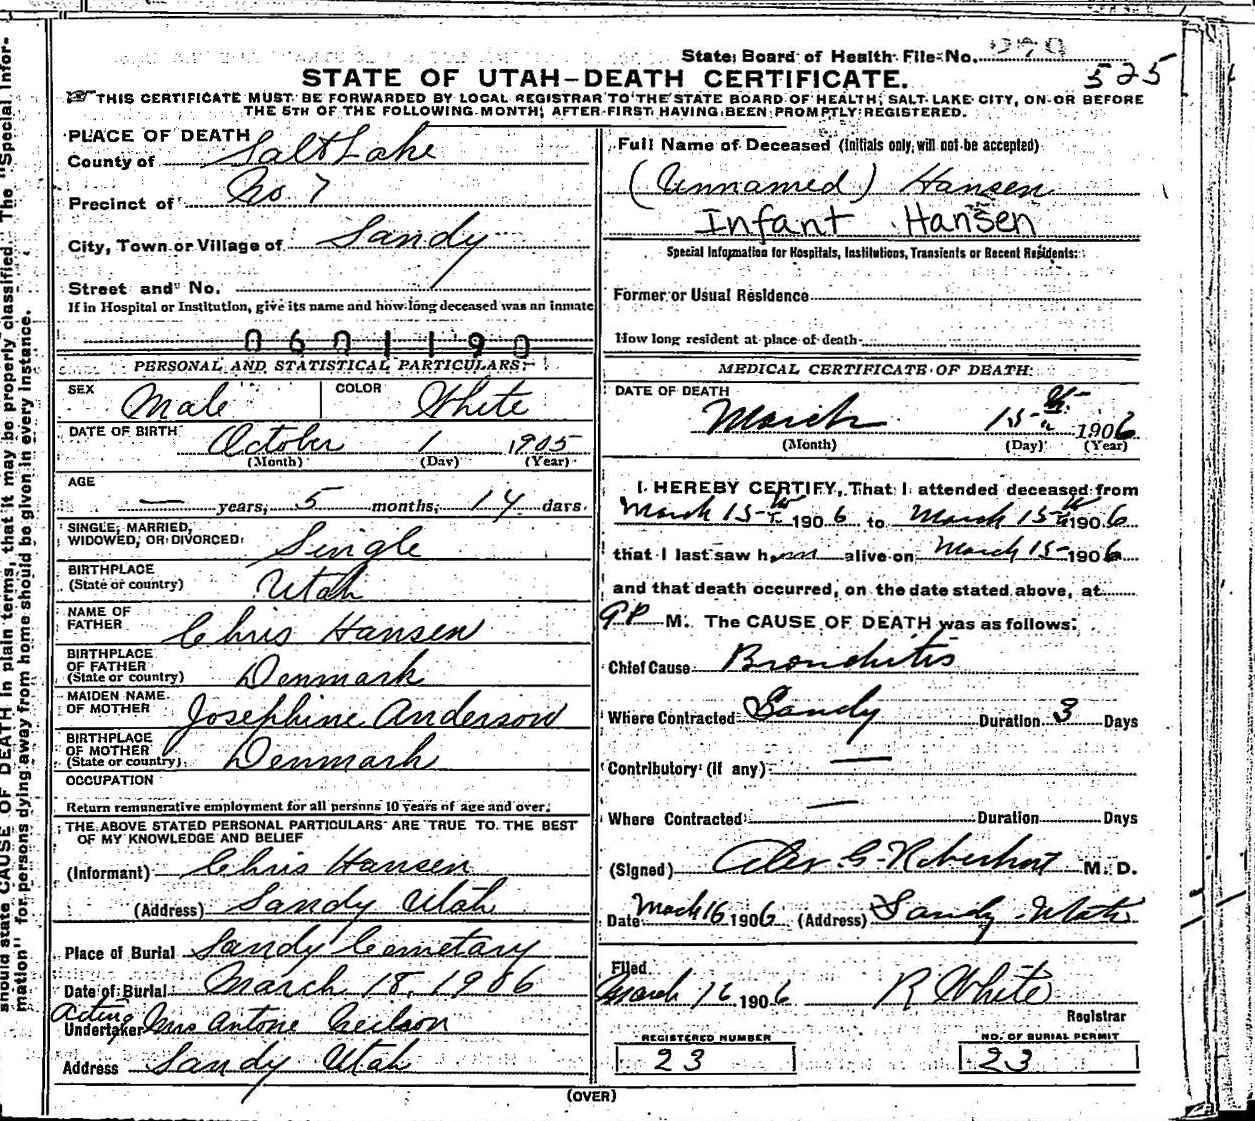 State Board of Health File No. 270
525
STATE OF UTAH-DEATH CERTIFICATE.
THIS CERTIFICATE MUST BE FORWARDED BY LOCAL REGISTRAR TO THE STATE BOARD OF HEALTH, SALT LAKE CITY, ON OR BEFORE
THE 5TH OF THE FOLLOWING MONTH, AFTER FIRST HAVING BEEN PROMPTLY REGISTERED.
PLACE OF DEATH
County of Salt Lake
Precinct of No. 7
City, Town or Village of Sandy
Street and No.
If in Hospital or Institution, give its name and how long deceased was an inmate
0601190
PERSONAL AND STATISTICAL PARTICULARS.
SEX Male COLOR White
DATE OF BIRTH October 1 1905
(Month) (Day) (Year)
AGE
— years, 5 months, 14 days
SINGLE, MARRIED,
WIDOWED, OR DIVORCED Single
BIRTHPLACE
(State or country) Utah
NAME OF
FATHER Chris Hansen
BIRTHPLACE
OF FATHER
(State or country) Denmark
MAIDEN NAME
OF MOTHER Josephine Anderson
BIRTHPLACE
OF MOTHER
(State or country) Denmark
OCCUPATION
Return remunerative employment for all persons 10 years of age and over.
THE ABOVE STATED PERSONAL PARTICULARS ARE TRUE TO THE BEST
OF MY KNOWLEDGE AND BELIEF
(Informant) Chris Hansen
(Address) Sandy Utah
Place of Burial Sandy Cemetary
Date of Burial March 18, 1906
Acting
Undertaker Mrs Antone Neilson
Address Sandy Utah
Full Name of Deceased (Initials only, will not be accepted)
(Unnamed) Hansen
Infant Hansen
Special Information for Hospitals, Institutions, Transients or Recent Residents:
Former or Usual Residence
How long resident at place of death
MEDICAL CERTIFICATE OF DEATH.
DATE OF DEATH
March 15th 1906
(Month) (Day) (Year)
I HEREBY CERTIFY, That I attended deceased from
March 15th 1906 to March 15th 1906
that I last saw him alive on March 15 1906
and that death occurred, on the date stated above, at
9 P M. The CAUSE OF DEATH was as follows:
Chief Cause Bronchitis
Where Contracted Sandy Duration 3 Days
Contributory (if any) —
Where Contracted — Duration Days
(Signed) Alex. G. Robertson M. D.
Date March 16 1906 (Address) Sandy Utah
Filed
March 16 1906 R White
Registrar
REGISTERED NUMBER
23
NO. OF BURIAL PERMIT
23
(OVER)
should state CAUSE OF DEATH in plain terms, that it may be properly classified. The "Special Infor-
mation" for persons dying away from home should be given in every instance.